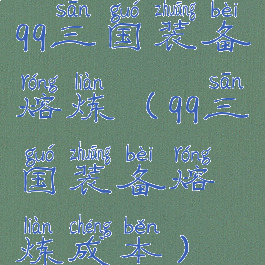 sān guó zhuāng bèi
qq三国装备
róng liàn sān
熔炼(qq三
guó zhuāng bèi róng
国装备熔
liàn chéng běn
炼成本)